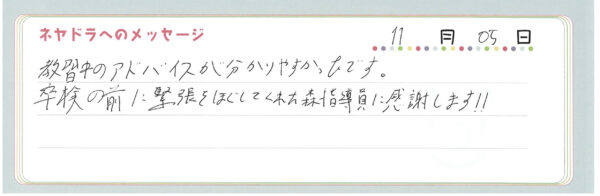 ネヤドラへのメッセージ 11 月 05 日
教習中のアドバイスが分かりやすかったです。
卒検の前に緊張をほぐしてくれた森指導員に感謝します!!